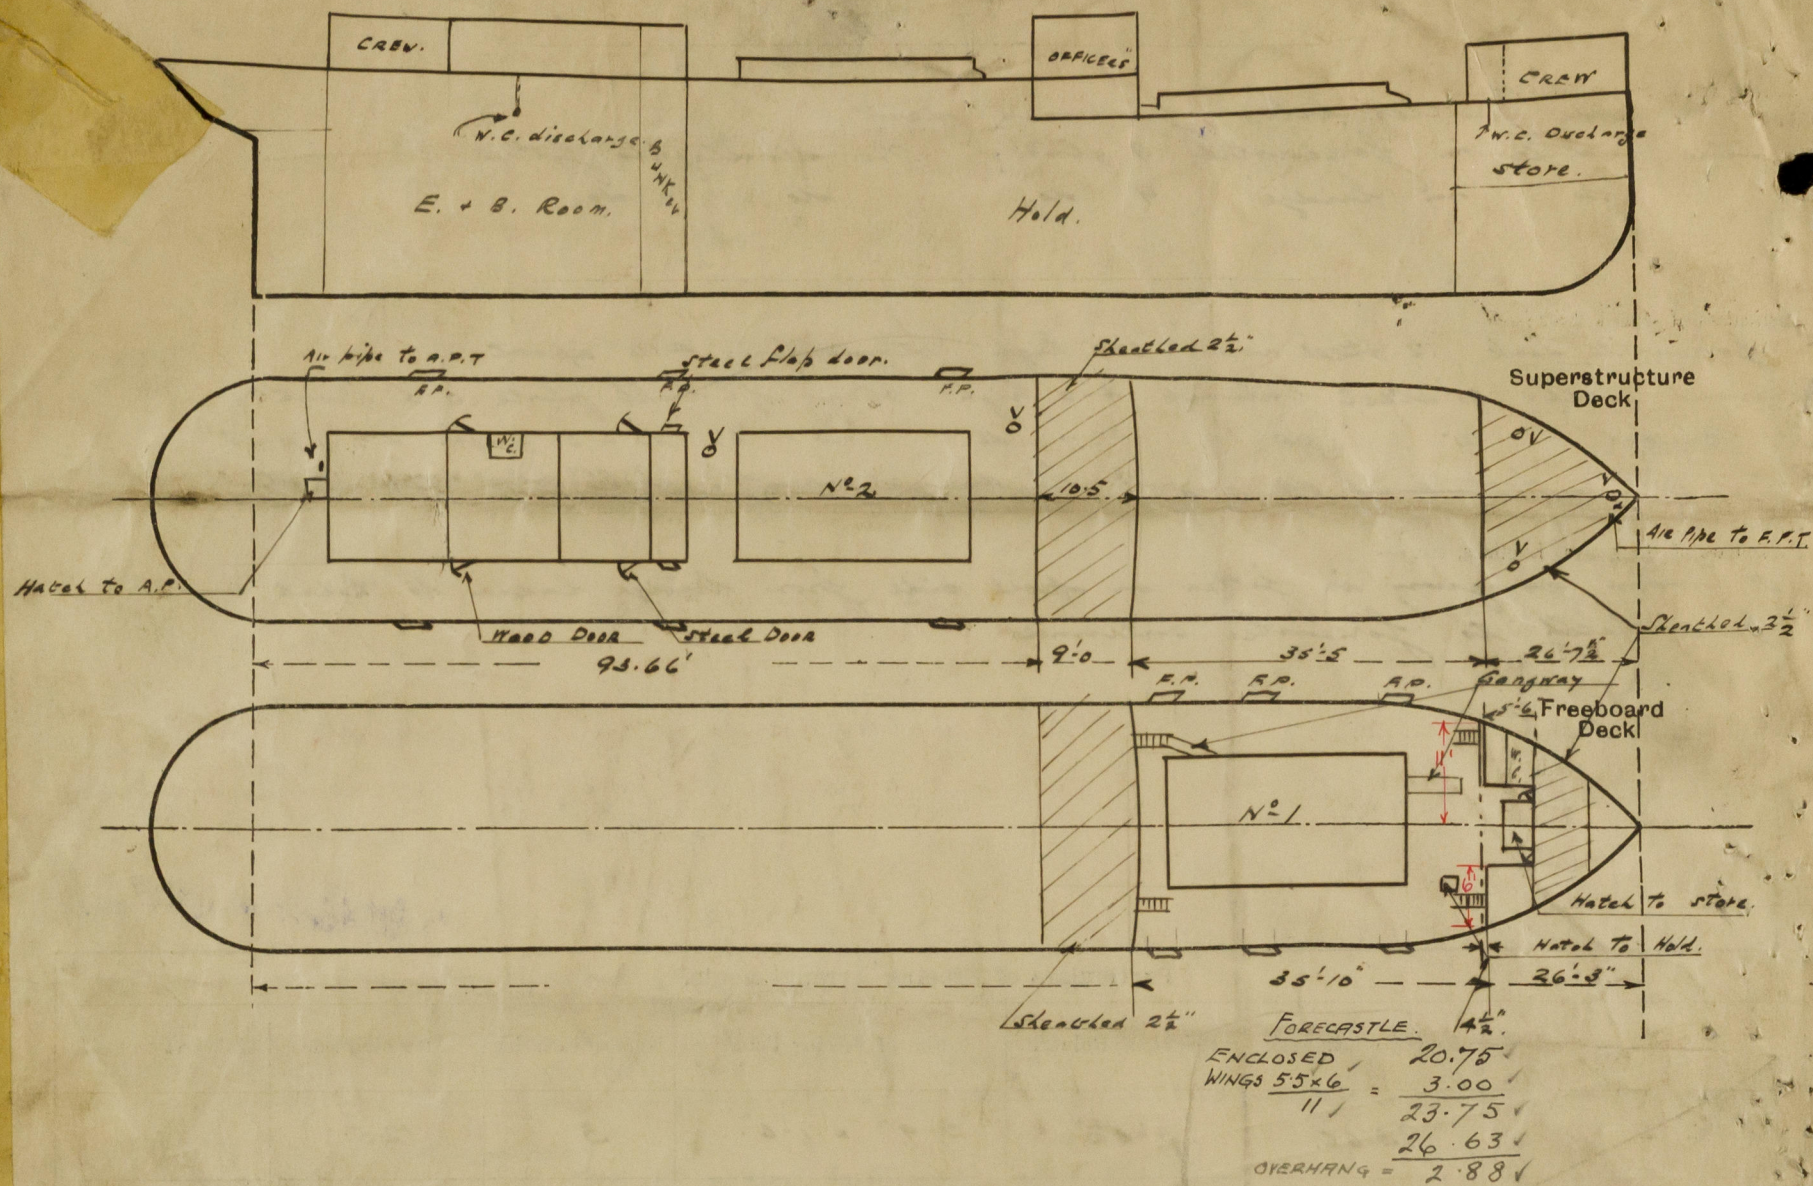 CREW.
OFFICERS
CREW
W.C. discharge
BUNKER
W.C. Discharge
store.
E. + B. Room.
Hold.
Air pipe to A.P.T
Steel flap door.
Sheathed 2½"
F.P.
F.P.
F.P.
Superstructure
Deck
W.C.
V
V
V
V
V
No 2
10.5
Air Pipe to F.P.T.
Hatch to A.P.
Wood Door
Steel Door
Sheathed 2½"
93.66'
9'-0
35'-5
26'-7½"
F.P.
F.P.
F.P.
Gangway
5'-6
Freeboard
Deck
11'
No 1
6'
Hatch to store.
Hatch to Hold.
35'-10"
26'-3"
Sheathed 2½"
4½"
FORECASTLE.
ENCLOSED 20.75
WINGS 5.5x6 / 11 = 3.00
23.75
26.63
OVERHANG = 2.88